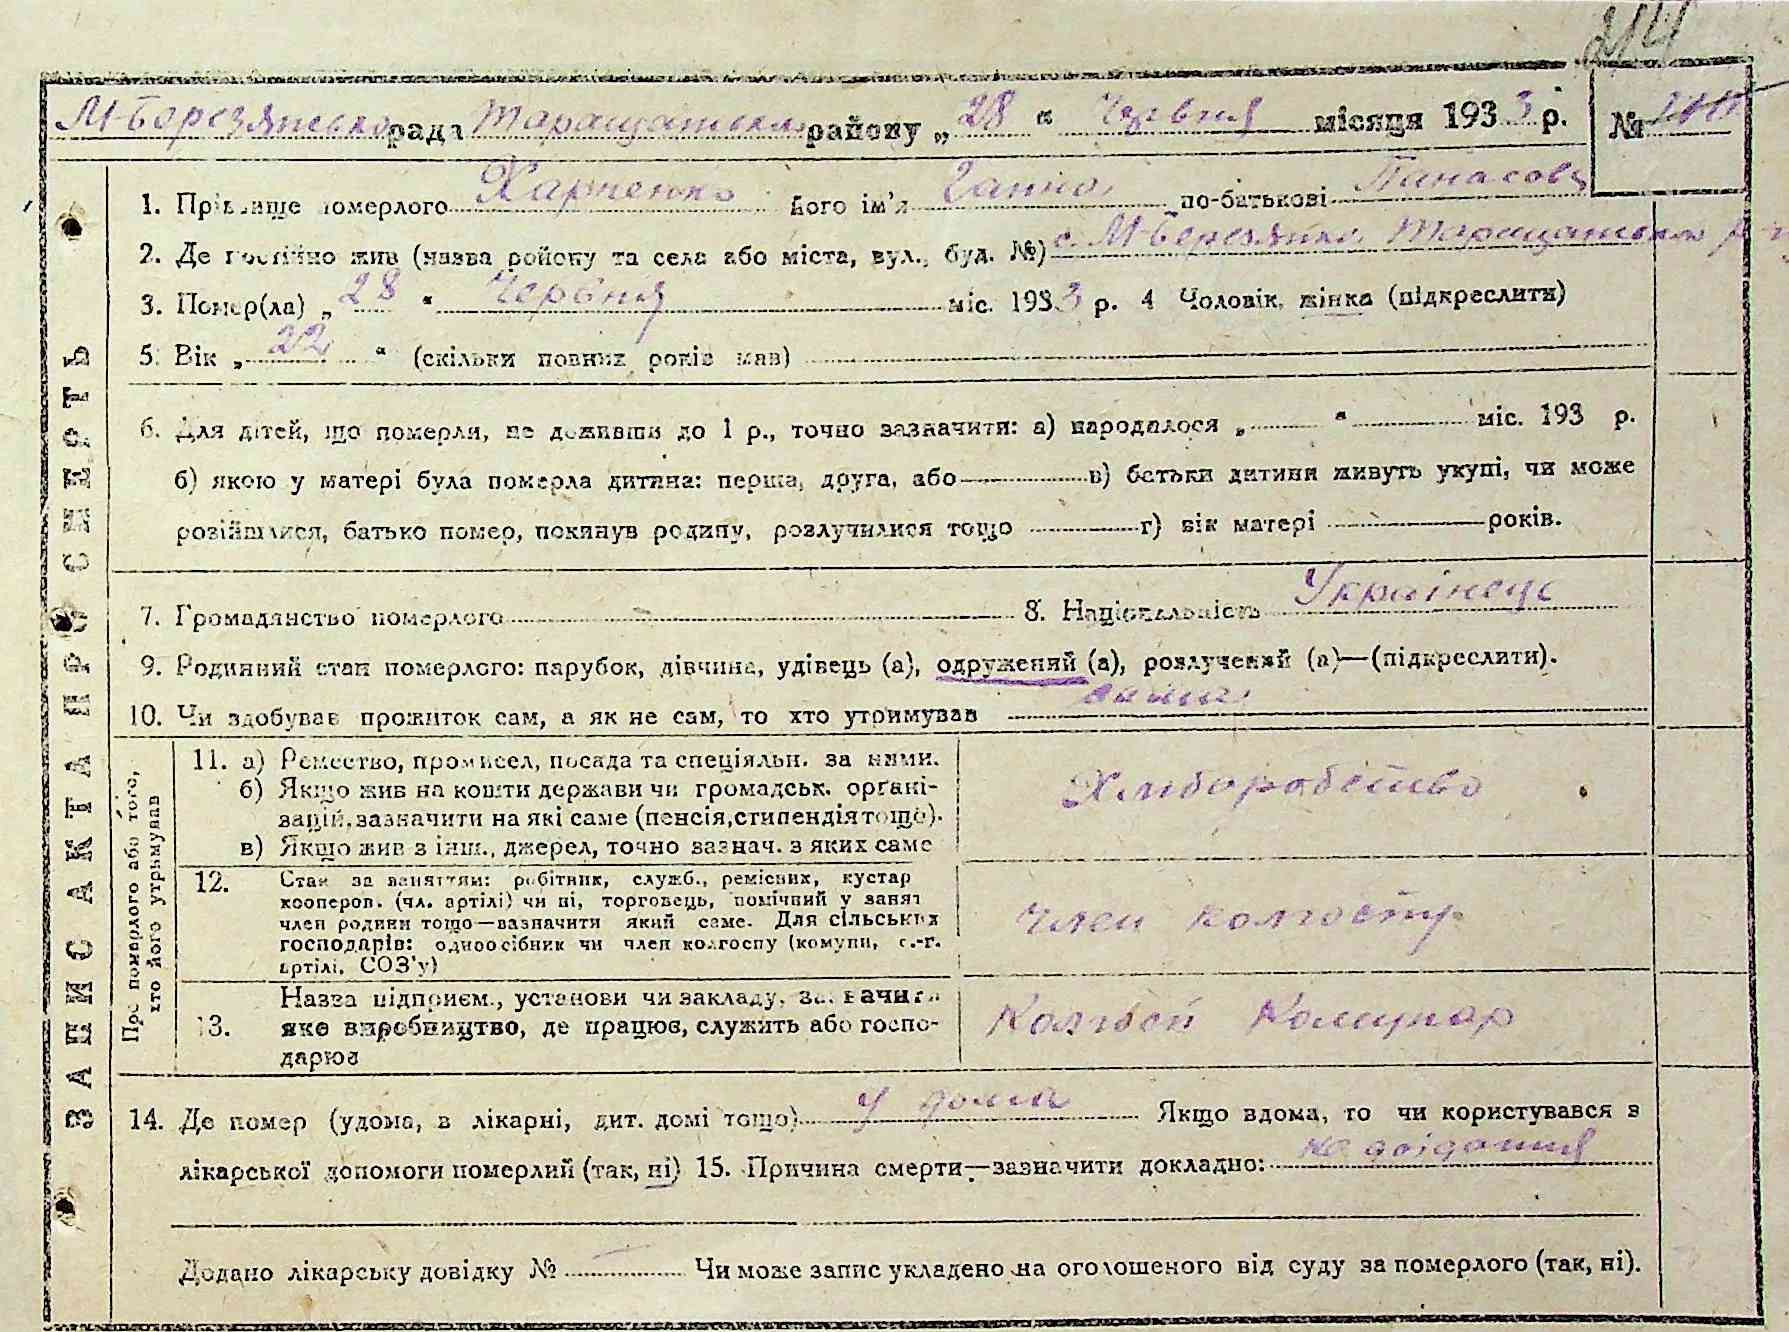 214
М-Березянська рада Таращанськ району „28“ Червня місяця 1933 р. №
ЗАПИС АКТА ПРО СМЕРТЬ
1. Прізвище померлого Харченко його ім'я Ганна по-батькові Панасовн
2. Де постійно жив (назва району та села або міста, вул., буд. №) с. М-Березянка Таращанськ р-н
3. Помер(ла) „28“ Червня міс. 1933 р. 4 Чоловік, жінка (підкреслити)
5. Вік „22“ (скільки повних років мав)
6. Для дітей, що померли, не доживши до 1 р., точно зазначити: а) народилося „ “ міс. 193 р.
б) якою у матері була померла дитина: перша, друга, або в) батьки дитини живуть укупі, чи може
розійшлися, батько помер, покинув родину, розлучилися тощо г) вік матері років.
7. Громадянство померлого 8. Національність Українець
9. Родинний стан померлого: парубок, дівчина, удівець (а), одружений (а), розлучений (а)—(підкреслити).
10. Чи здобував прожиток сам, а як не сам, то хто утримував сама
Про померлого або того, хто його утримував
11. а) Ремество, промисел, посада та спеціяльн. за ними.
б) Якщо жив на кошти держави чи громадськ. органі-
зацій, зазначити на які саме (пенсія, стипендія тощо).
в) Якщо жив з інш., джерел, точно зазнач. з яких саме
Хліборобство
12. Стан за заняттям: робітник, служб., ремісник, кустар
кооперов. (чл. артілі) чи ні, торговець, помічний у занят
член родини тощо—зазначити який саме. Для сільських
господарів: одноосібник чи член колгоспу (комуни, с.-г.
артілі, СОЗ'у)
член колгоспу
13. Назва підприєм., установи чи закладу, зазначити
яке виробництво, де працює, служить або госпо-
дарює
Колгосп Комунар
14. Де помер (удома, в лікарні, дит. домі тощо) у дома Якщо вдома, то чи користувався з
лікарської допомоги померлий (так, ні) 15. Причина смерти—зазначити докладно: не доїдання
Додано лікарську довідку № Чи може запис укладено на оголошеного від суду за померлого (так, ні).